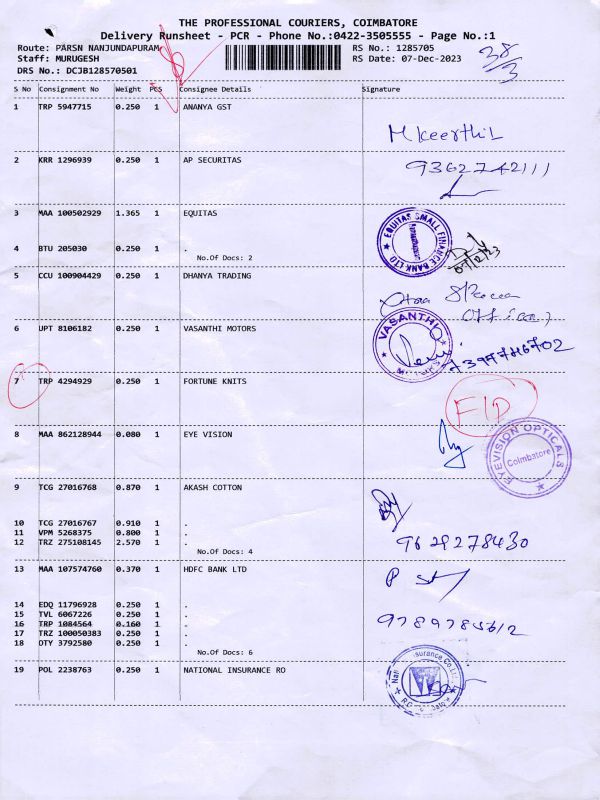 THE PROFESSIONAL COURIERS, COIMBATORE
Delivery Runsheet - PCR - Phone No.:0422-3505555 - Page No.:1
Route: PARSN NANJUNDAPURAM RS No.: 1285705
Staff: MURUGESH RS Date: 07-Dec-2023
DRS No.: DCJB128570501
38/3
S No Consignment No Weight PCS Consignee Details Signature
1 TRP 5947715 0.250 1 ANANYA GST
2 KRR 1296939 0.250 1 AP SECURITAS
9362742111
3 MAA 100502929 1.365 1 EQUITAS
EQUITAS SMALL FINANCE BANK LTD
4 BTU 205030 0.250 1 .
No.Of Docs: 2
07/12/23
5 CCU 100904429 0.250 1 DHANYA TRADING
6 UPT 8106182 0.250 1 VASANTHI MOTORS
VASANTHI
7397746702
7 TRP 4294929 0.250 1 FORTUNE KNITS
F/D
8 MAA 862128944 0.080 1 EYE VISION
EYEVISION OPTICALS
Coimbatore
9 TCG 27016768 0.870 1 AKASH COTTON
10 TCG 27016767 0.910 1 .
11 VPM 5268375 0.800 1 .
12 TRZ 275108145 2.570 1 .
No.Of Docs: 4
9629278430
13 MAA 107574760 0.370 1 HDFC BANK LTD
14 EDQ 11796928 0.250 1 .
15 TVL 6067226 0.250 1 .
16 TRP 1084564 0.160 1 .
17 TRZ 100050383 0.250 1 .
18 OTY 3792580 0.250 1 .
No.Of Docs: 6
9789785612
19 POL 2238763 0.250 1 NATIONAL INSURANCE RO